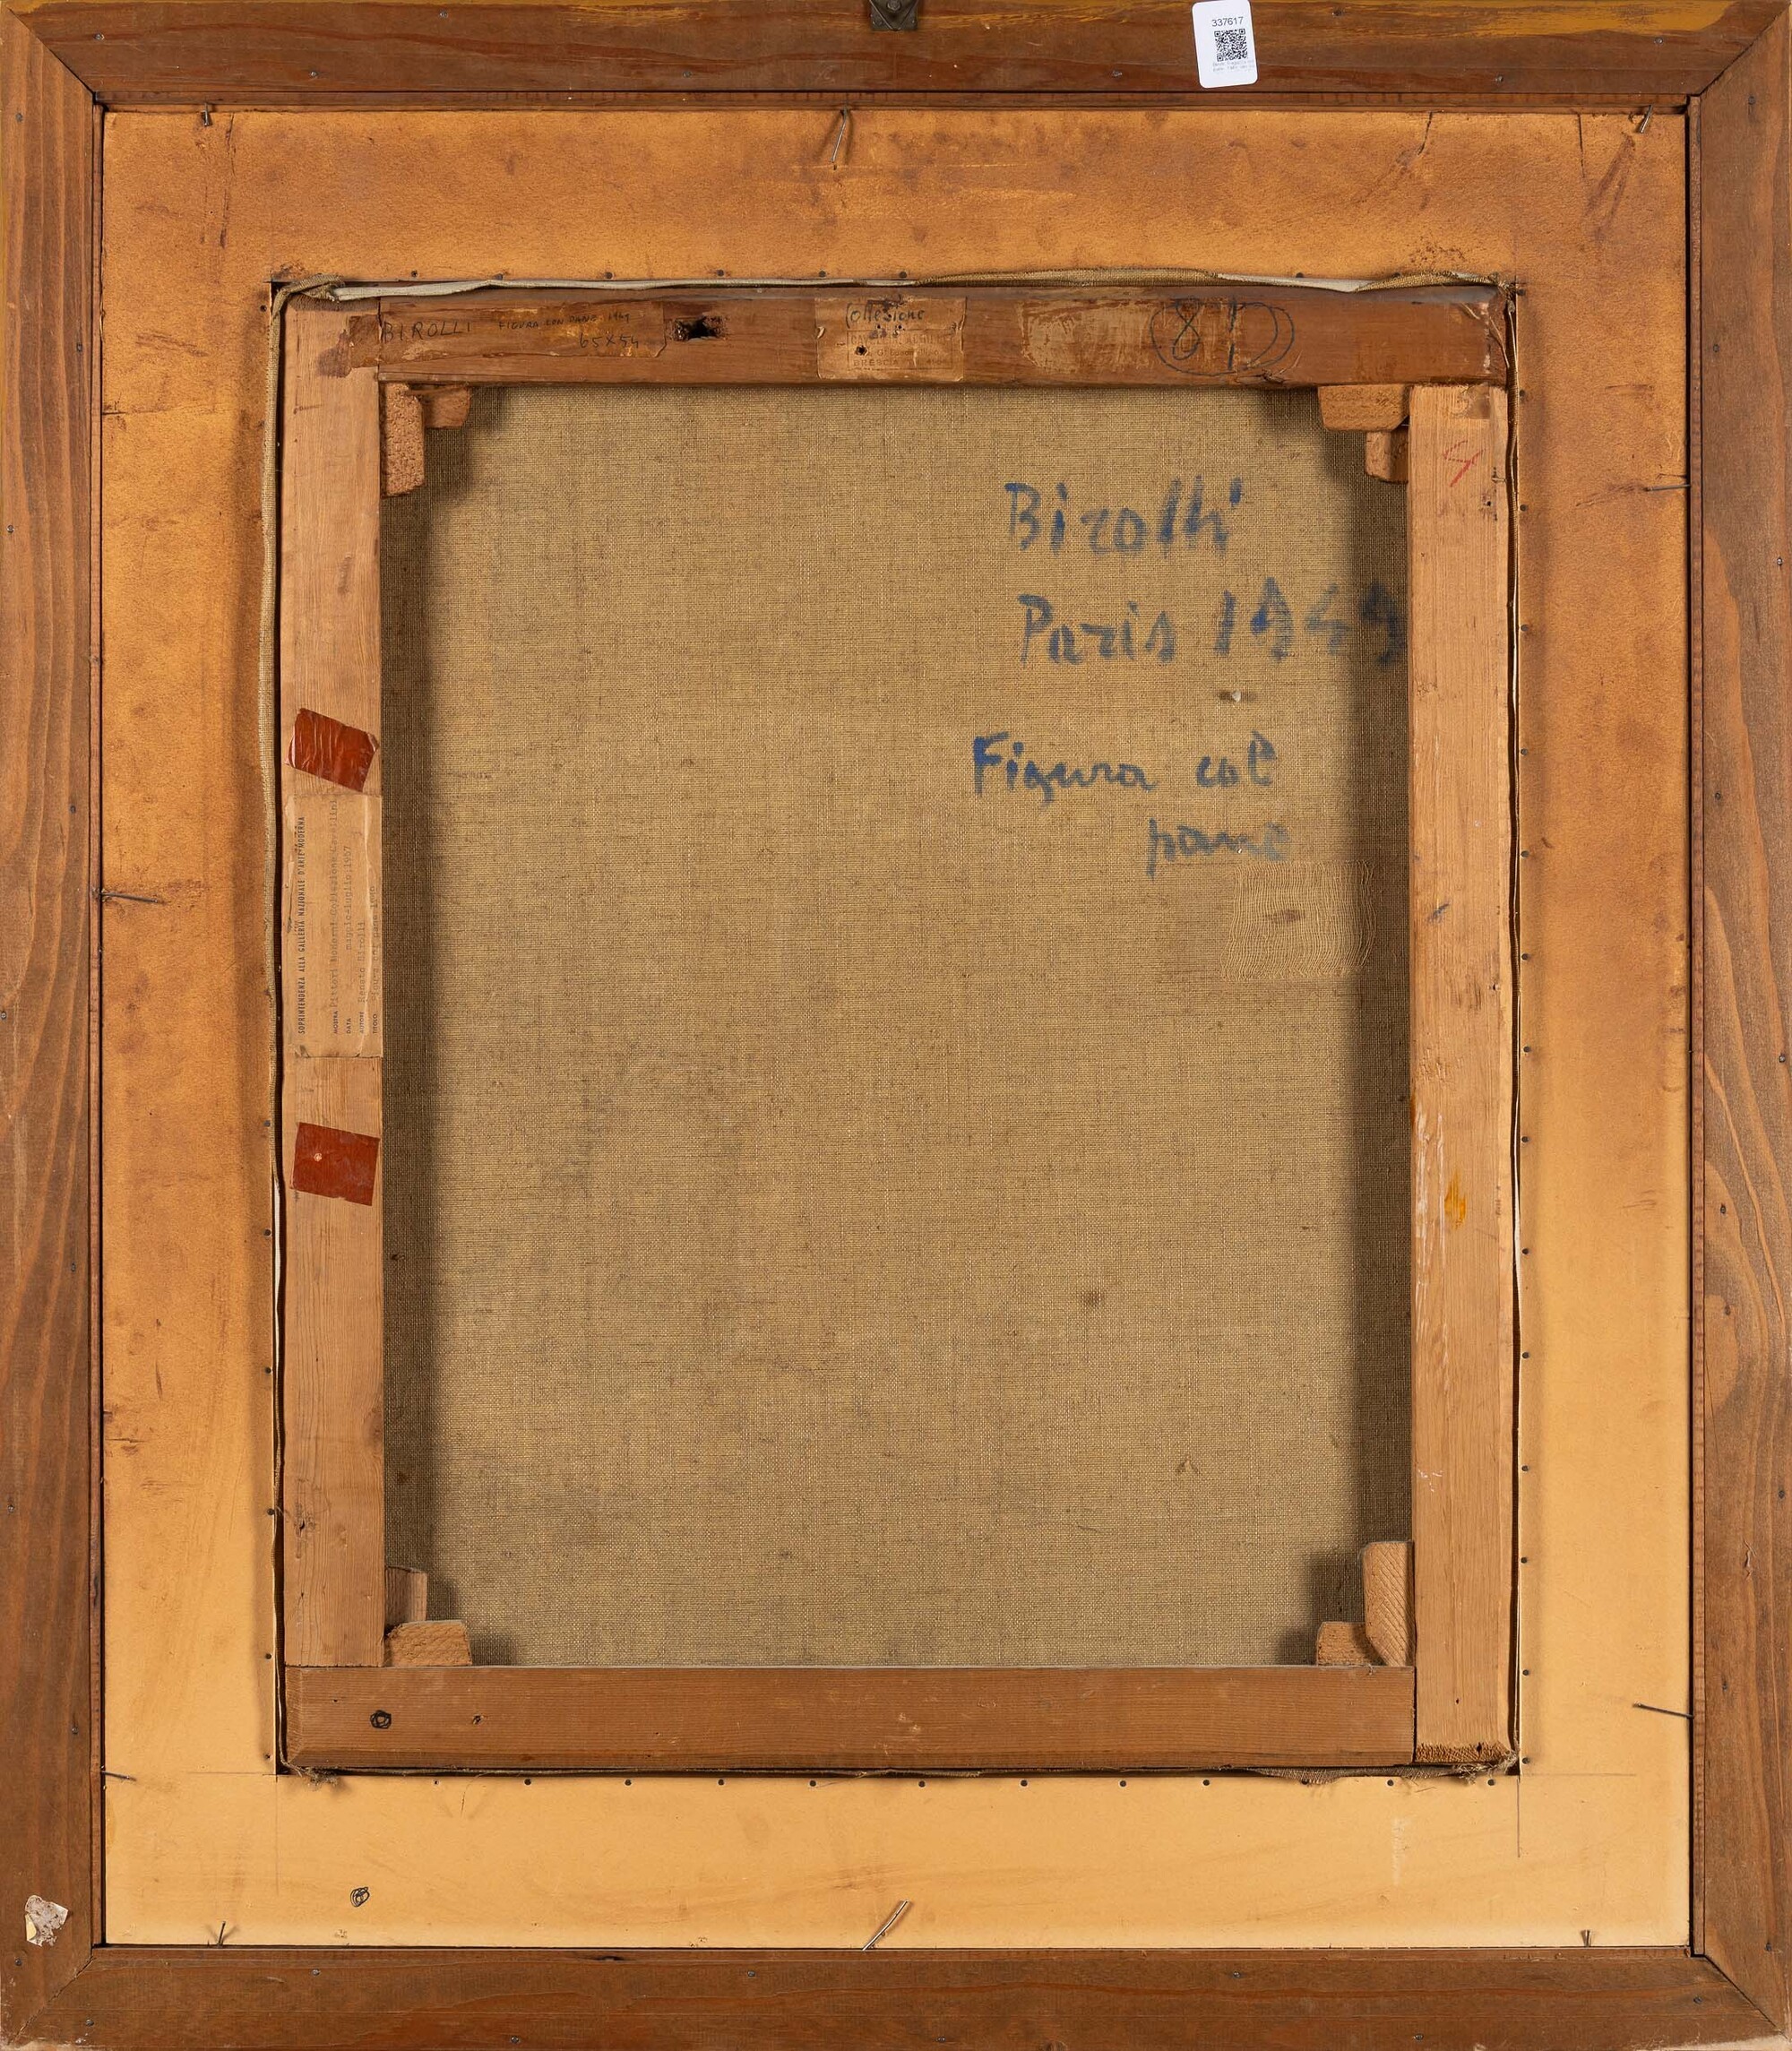 337617
BIROLLI FIGURA CON PANE 1949
65X54
Collezione
BRESCIA
81
4
Birolli
Paris 1949
Figura col
pane
SOPRINTENDENZA ALLA GALLERIA NAZIONALE D'ARTE MODERNA
MOSTRA Pittori Moderni Collezione Cavellini
DATA maggio-luglio 1957
AUTORE Renato Birolli
TITOLO